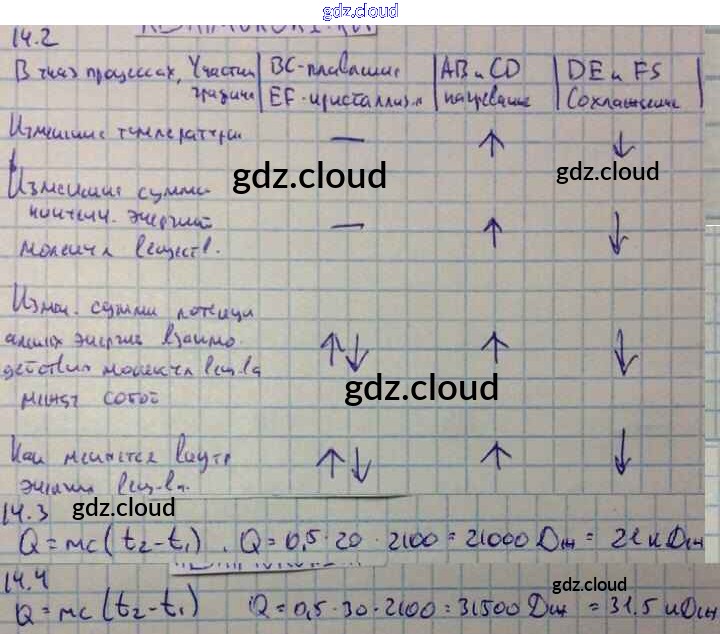 gdz.cloud
14.2
В чназ процессах, Участки графика | BC-плавление EF-кристаллиз-я | AB и CD нагревание | DE и FS Сохлаждение
Изменение температуры — ↑ ↓
gdz.cloud
gdz.cloud
Изменение суммы
кинетич. энергий — ↑ ↓
молекул веществ.
Измен. суммы потенци
альных энергий взаимо ↑↓ ↑ ↓
действия молекул вещ-ва
между собой
gdz.cloud
Как меняется внутр ↑↓ ↑ ↓
энергия вещ-ва.
14.3
gdz.cloud
Q = mc(t₂-t₁). Q = 0,5·20·2100 = 21000 Дж = 21 кДж
14.4
gdz.cloud
Q = mc(t₂-t₁) Q = 0,5·30·2100 = 31500 Дж = 31.5 кДж